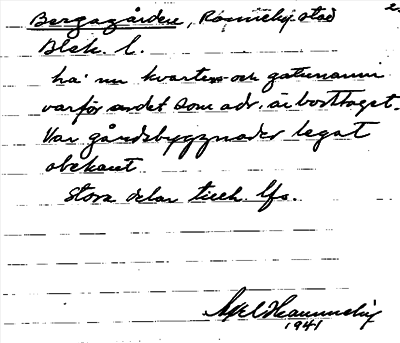 Bergagården, Ronneby stad
Blek. l.
ha nu kvarters- och gatunamn
varför ordet som adr. är borttaget.
Var gårdsbyggnader legat
obekant
Stora delar tillh. lfs.
Axel
1941